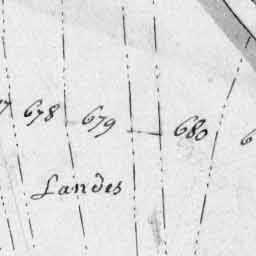 678
679
680
Landes